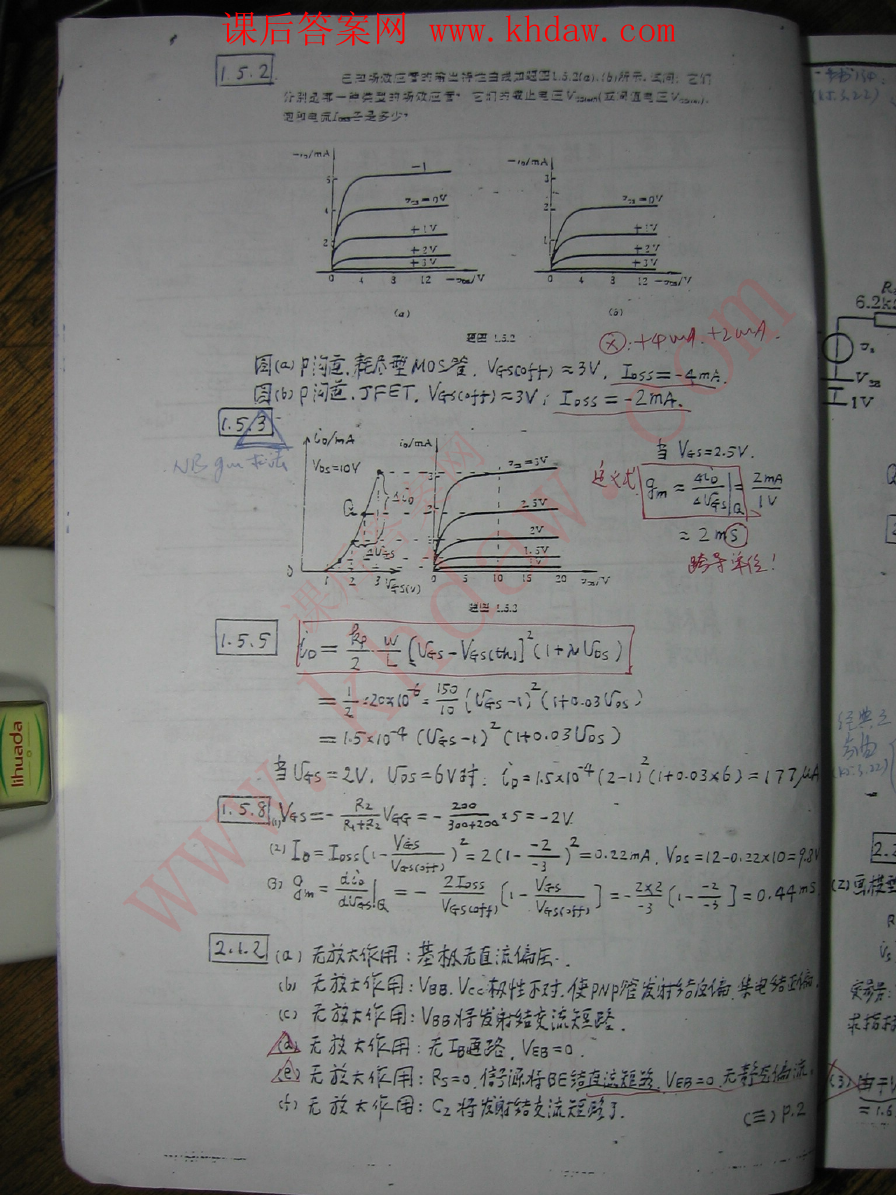 课后答案网 www.khdaw.com
1.5.2 已知场效应管的输出特性曲线如题图1.5.2(a)、(b)所示。试问：它们
分别是哪一种类型的场效应管？它们的截止电压V
饱和电流 是多少？
-iD/mA
-1
vGS=0V
+1V
+2V
+3V
0 4 8 12 -vDS/V
(a)
-iD/mA
3
2
1
vGS=0V
+1V
+2V
+3V
0 4 8 12 -vDS/V
(b)
题图 1.5.2
(×): +4mA. +2mA.
图(a) P沟道.耗尽型MOS管. VGS(off) ≈ 3V, IDSS = -4mA.
图(b) P沟道. JFET. VGS(off) ≈ 3V; IDSS = -2mA.
1.5.3
NB gm
iD/mA
VDS=10V
Q
ΔiD
ΔVGS
0 1 2 3 VGS(V)
iD/mA
vGS=3V
2.5V
2V
1.5V
0 5 10 15 20 vDS/V
题图 1.5.3
当 VGS=2.5V.
定义式 gm ≈ ΔiD/ΔVGS|Q = 2mA/1V
≈ 2mS
跨导单位!
1.5.5 iD = kp/2 W/L [VGS-VGS(th)]²(1+λVDS)
= 1/2 ×20×10⁻⁶ × 150/10 (VGS-1)²(1+0.03VDS)
= 1.5×10⁻⁴ (VGS-1)²(1+0.03VDS)
当VGS=2V, VDS=6V时: iD=1.5×10⁻⁴(2-1)²(1+0.03×6)=177μA
1.5.8 (1) VGS = - R2/(R1+R2) VGG = - 200/(300+200) ×5 = -2V.
(2) ID=IDSS(1- VGS/VGS(off))² = 2(1- -2/-3)² = 0.22mA, VDS=12-0.22×10=9.8V
(3) gm = diD/dVGS|Q = - 2IDSS/VGS(off) [1- VGS/VGS(off)] = - 2×2/-3 [1- -2/-3] = 0.44mS
2.1.2 (a) 无放大作用: 基极无直流偏压.
(b) 无放大作用: VBB. VCC极性不对, 使PNP管发射结反偏, 集电结正偏.
(c) 无放大作用: VBB将发射结交流短路.
(d) 无放大作用: 无IB通路, VEB=0.
(e) 无放大作用: RS=0, 信号源将BE结直流短路, VEB=0 无静态偏流.
(f) 无放大作用: C2将发射结交流短路了.
(三) P.2
6.2k
1V
经典
2.2
(2) 画模型
求指标
(3) 由于V
=1.6
lihuada
课后答案网
www.khdaw.com